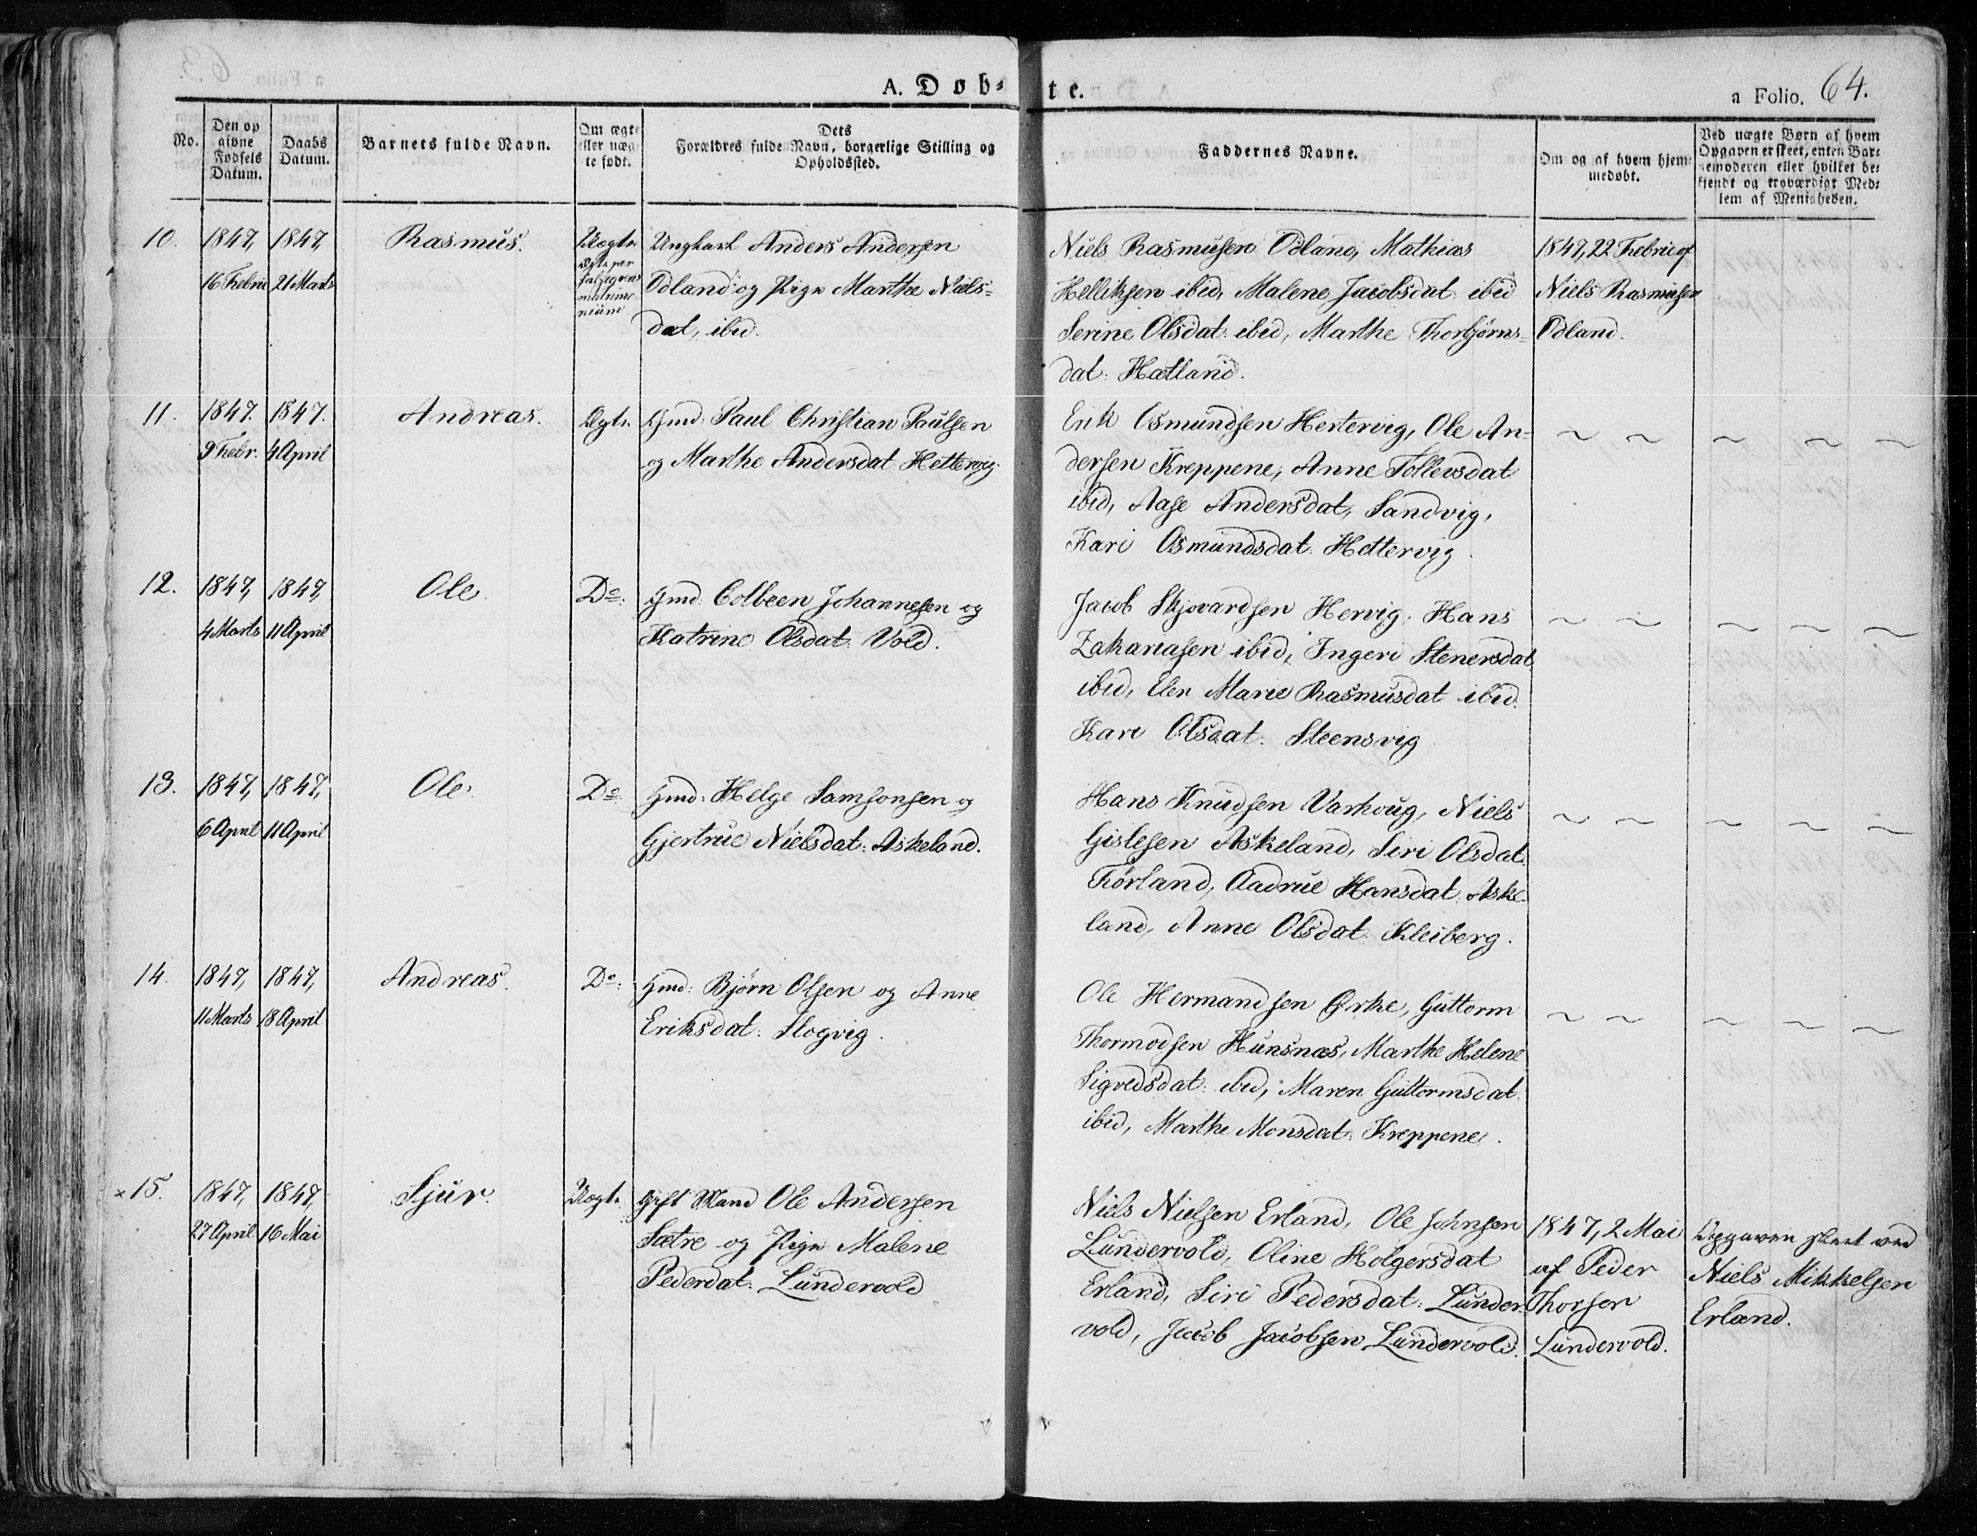 A. Døb-
te.
a Folio. 64.
No.
Den op
givne
Fødsels
Datum.
Daabs
Datum.
Barnets fulde Navn.
Om ægte
eller uæg
te født.
Dets
Forældres fulde Navn, borgerlige Stilling og
Opholdssted.
Faddernes Navne.
Om og af hvem hjem-
medøbt.
Ved uægte Børn af hvem
Opgaven er skeet, enten Bar-
nemoderen eller hvilket be-
kjendt og troværdigt Med-
lem af Menigheden.
10.
1847,
16 Februe
1847,
21 Marts
Rasmus.
Uægte
Ungkarl Anders Andersen
Odland og Pige Marthe Niels-
dat, ibid.
Niels Rasmusen Odland, Mathias
Helliksen ibid, Malene Jacobsdat: ibid
Serine Olsdat: ibid, Marthe Thorbjørns-
dat: Hætland.
1847, 22 Februe af
Niels Rasmusen
Odland.
11.
1847.
9 Febr.
1847.
4 April
Andreas.
Ægte
Gmd: Paul Christian Paulsen
og Marthe Andersdat Hettervig.
Erik Osmundsen Hertervig, Ole An-
dersen Kreppene, Anne Tollevsdat
ibid, Aase Andersdat, Sandvig,
Kari Osmundsdat: Hettervig.
12.
1847,
4 Marts
1847,
11 April
Ole.
Do:
Gmd: Colbeen Johannesen og
Katrine Olsdat: Vold.
Jacob Skjvardsen Hervig, Hans
Zakariasen ibid, Ingeri Stenersdat
ibid, Elen Marie Rasmusdat ibid.
Kari Olsdat: Steensvig
13.
1847,
6 April
1847,
11 April
Ole.
Do
Gmd: Helge Samsonsen og
Gjertrue Nielsdat: Askeland.
Hans Knudsen Varhoug, Niels
Gislesen Askeland, Siri Olsdat:
Førland, Aadrue Hansdat: Aske-
land, Anne Olsdat: Kleiberg.
14.
1847,
11 Marts
1847,
18 April
Andreas.
Do:
Gmd: Bjørn Olsen og Anne
Eriksdat: Slogvig.
Ole Hermandsen Ørke, Guttorm
Thormodsen Hunsnæs, Marthe Helene
Sigvedsdat: ibid, Maren Guttormsdat:
ibid, Marthe Monsdat: Kreppene.
x 15.
1847,
27 April
1847,
16 Mai
Sjur.
Uægte
Gift Mand Ole Andersen
Sætre og Pige Malene
Pederdat: Lundervold
Niels Nielsen Erland, Ole Johnsen
Lundervold, Oline Holgersdat
Erland, Siri Pedersdat: Lunder-
vold, Jacob Jacobsen Lundervold.
1847, 2 Mai
af Peder
Thorsen
Lundervold.
Opgaven skeet ved
Niels Mikkelsen
Erland.